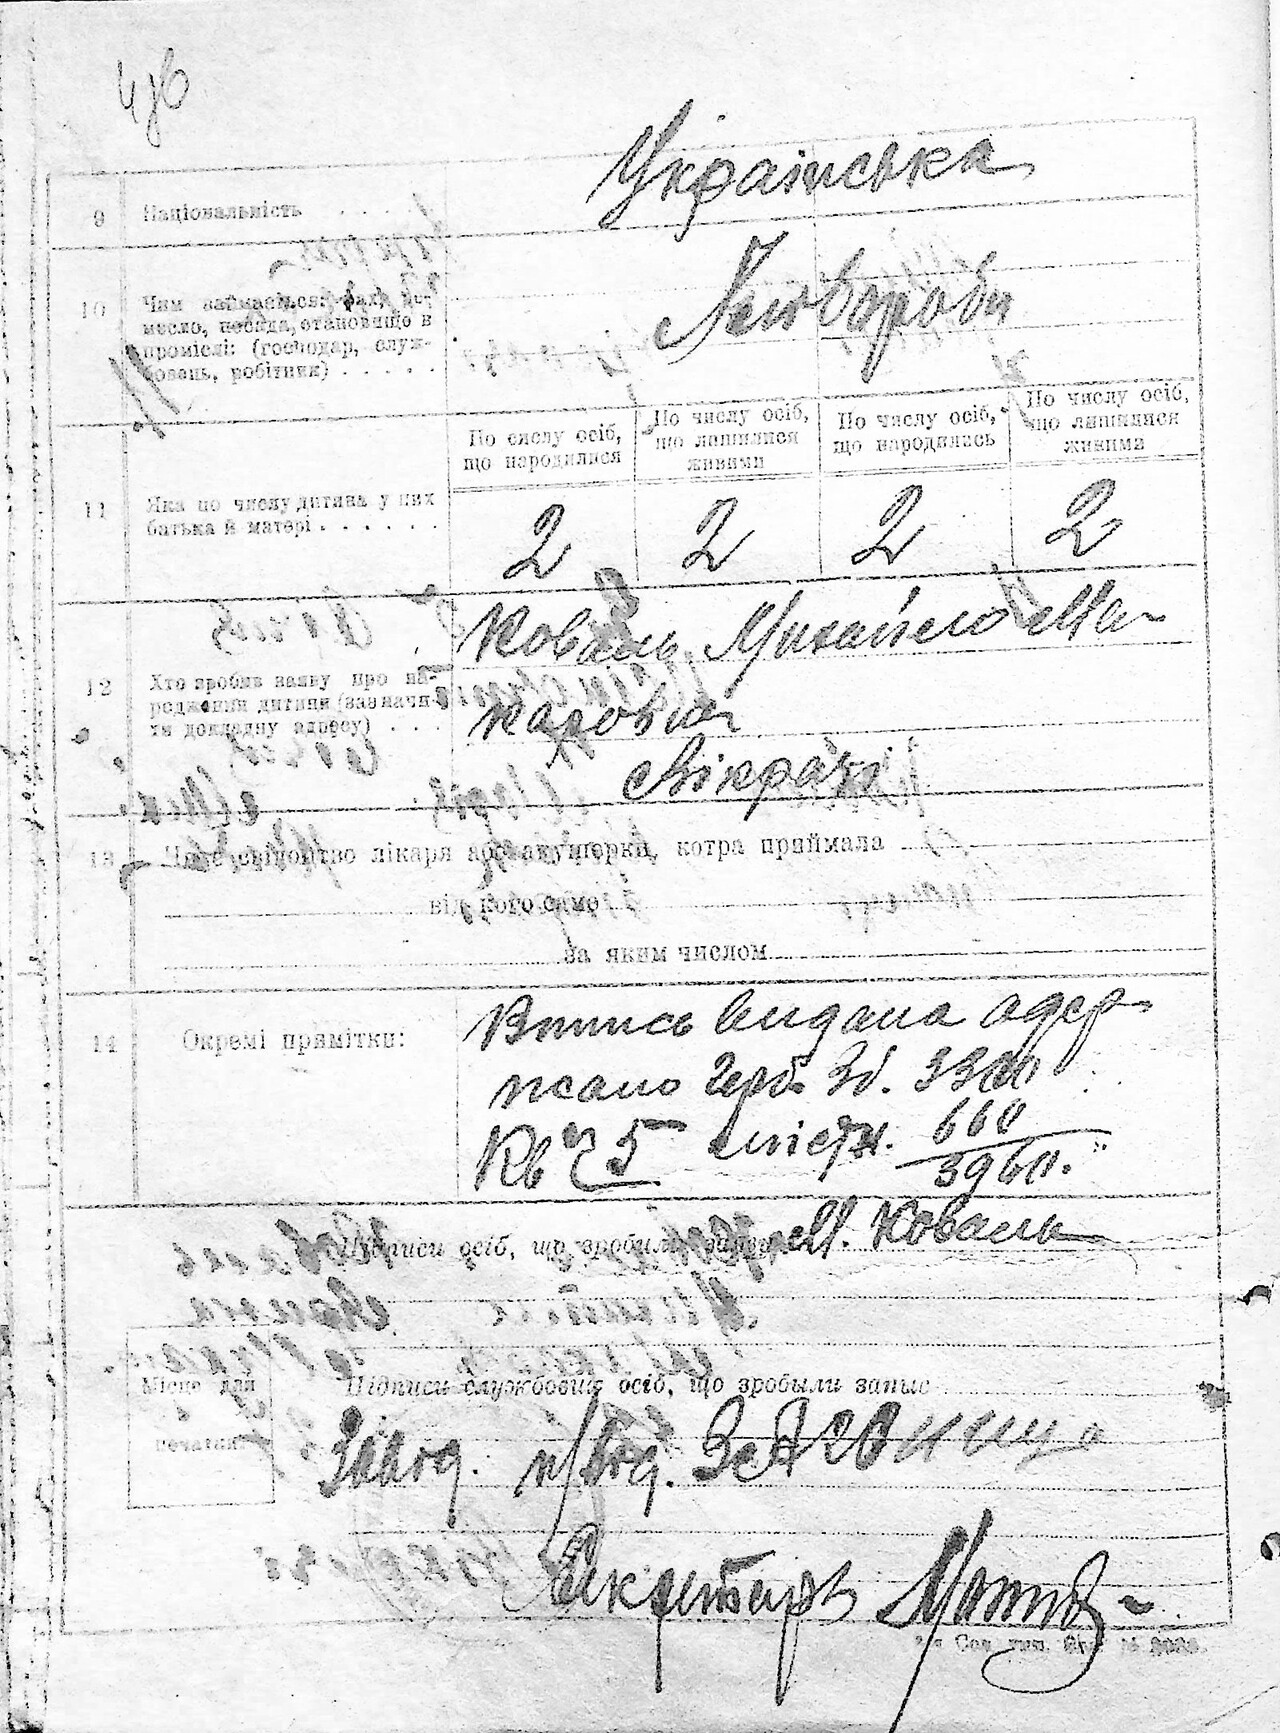 Українська
9 Національність
Хлібороби
10 Чим займається: фах, ре-
месло, посада, становище в
промислі: (господар, служ-
бовець, робітник)
По числу осіб, що народилися
По числу осіб, що лишилися живими
По числу осіб, що народились
По числу осіб, що лишилися живими
11 Яка по числу дитина у них
батька й матері
2 2 2 2
Коваль Михайло Ма-
12 Хто зробив заяву про на-
родження дитини (зазначи-
ти докладну адресу)
каровий
Вікрачі
13 свідоцтво лікаря або акушерки, котра приймала
від кого саме
за яким числом
14 Окремі примітки:
Впись видана одер-
жано Герб. Зб. 3300
Кв Ч 5 містн. 660
3960.
Підписи осіб, що зробили заяву М. Коваль
Місце для
печатки
Підписи службових осіб, що зробыли запис
Завід. п/від.
Секретарь